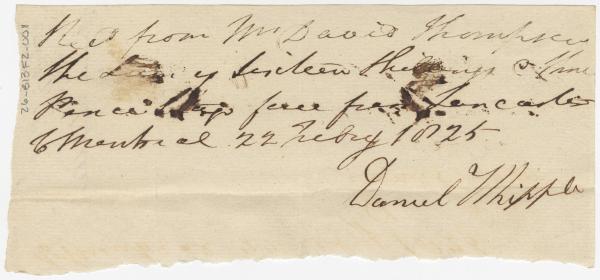 Recd from Mr David Thompson
the Sum of Sixteen Shillings &
Pence fare from Lancaster
to Montreal 22 Feby 1825
Daniel Whipple
26-B13F2-001